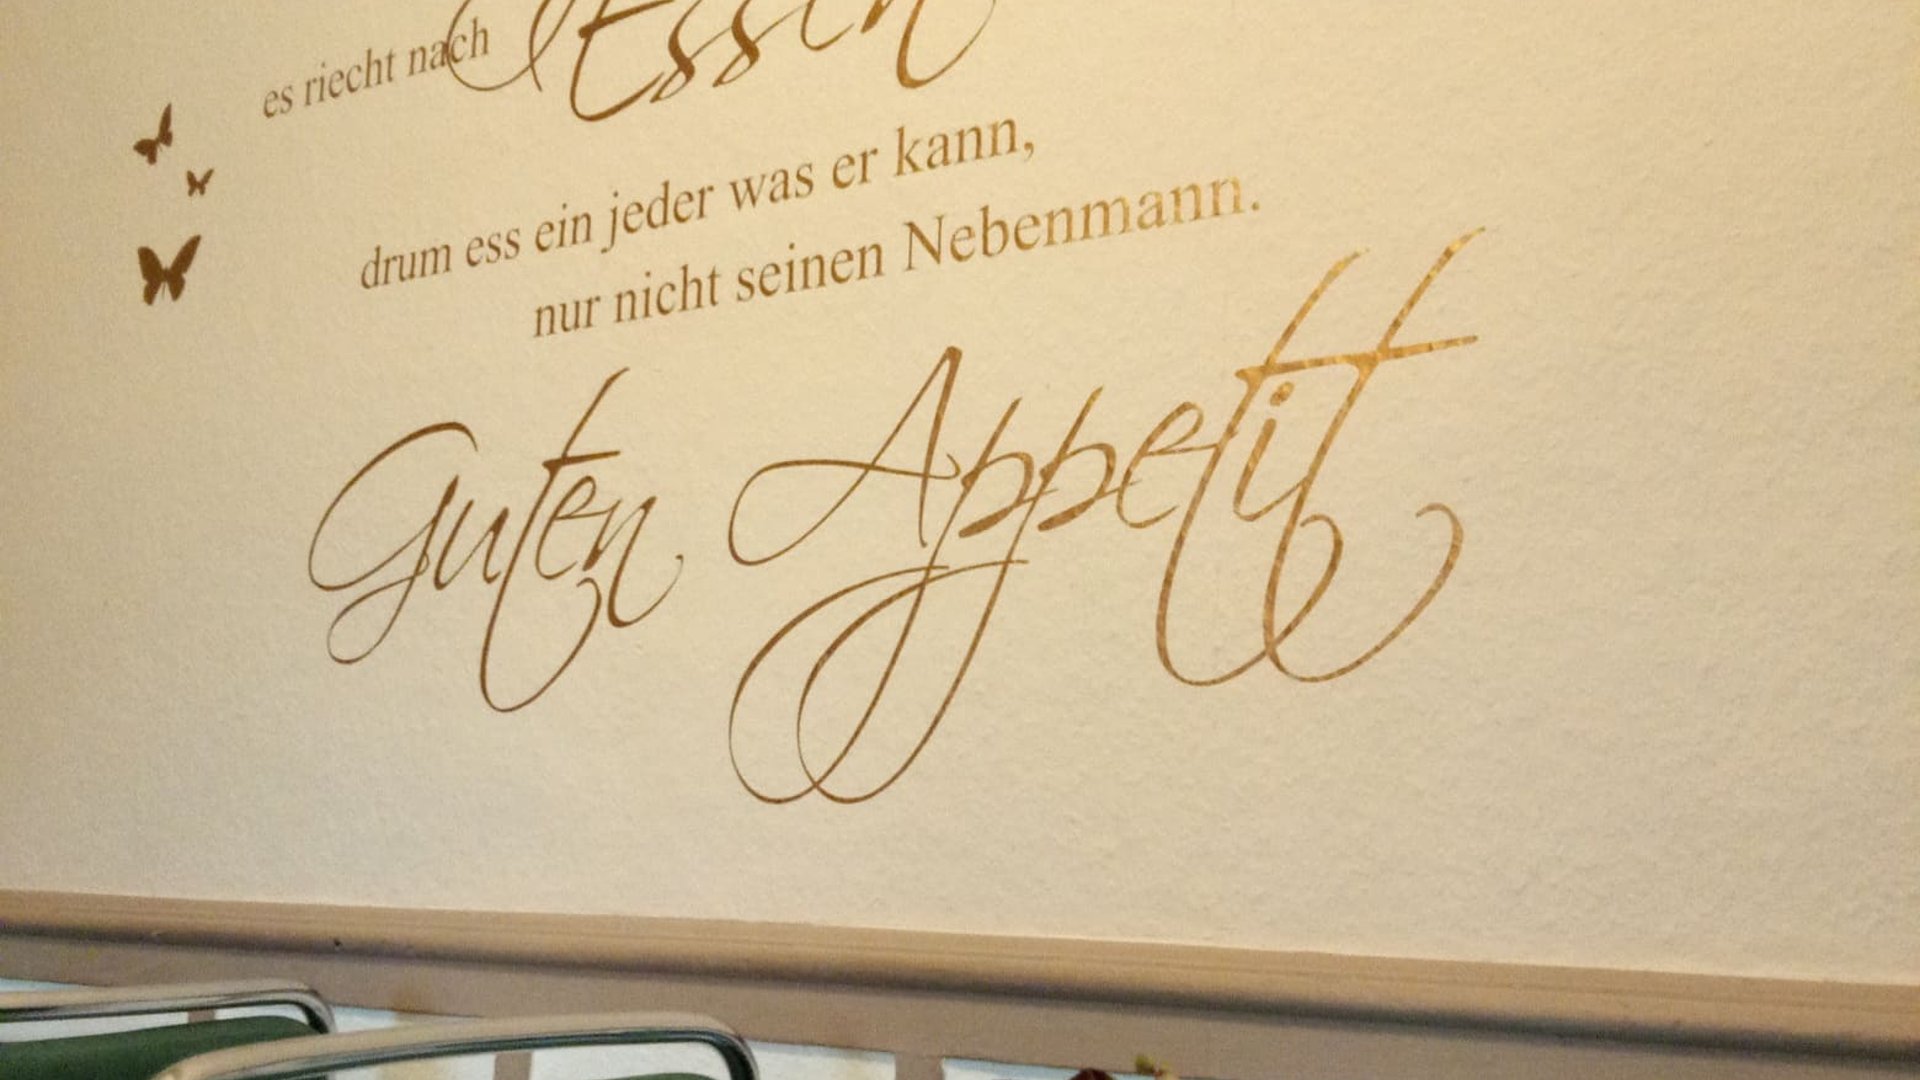 es riecht nach Essen
drum ess ein jeder was er kann,
nur nicht seinen Nebenmann.
Guten Appetit